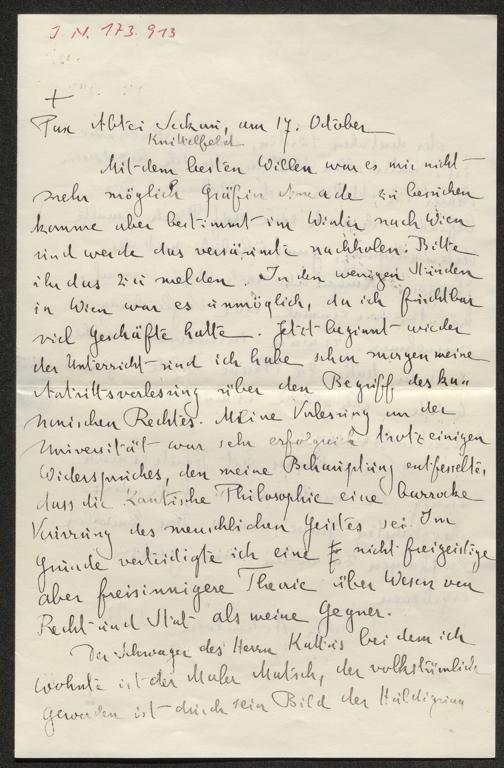 J. N. 173.913
+
Pax Abtei Seckau, am 17. October
Knittelfeld
Mit dem besten Willen war es mir nicht
mehr möglich Gräfin zu besuchen
komme aber bestimmt im Winter nach Wien
und werde das versäumte nachholen. Bitte
ihr das zu melden. In den wenigen Stunden
in Wien war es unmöglich, da ich furchtbar
viel Geschäfte hatte. Jetzt beginnt wieder
der Unterricht und ich habe schon morgen meine
Antrittsvorlesung über den Begriff des ka„
nonischen Rechtes. Meine Vorlesung an der
Universität war sehr erfolgreich trotz einigen
Widerspruches, den meine Behauptung entfesselte,
dass die Kantische Philosophie eine barrocke
Verirrung des menschlichen Geistes sei. Im
Grunde verteidigte ich eine nicht freigeistige
aber freisinnigere Theorie über Wesen von
Recht und Stat als meine Gegner.
Der Schwager des Herrn bei dem ich
wohnte ist der Maler Matsch, der volkstümlich
geworden ist durch sein Bild der Huldigung